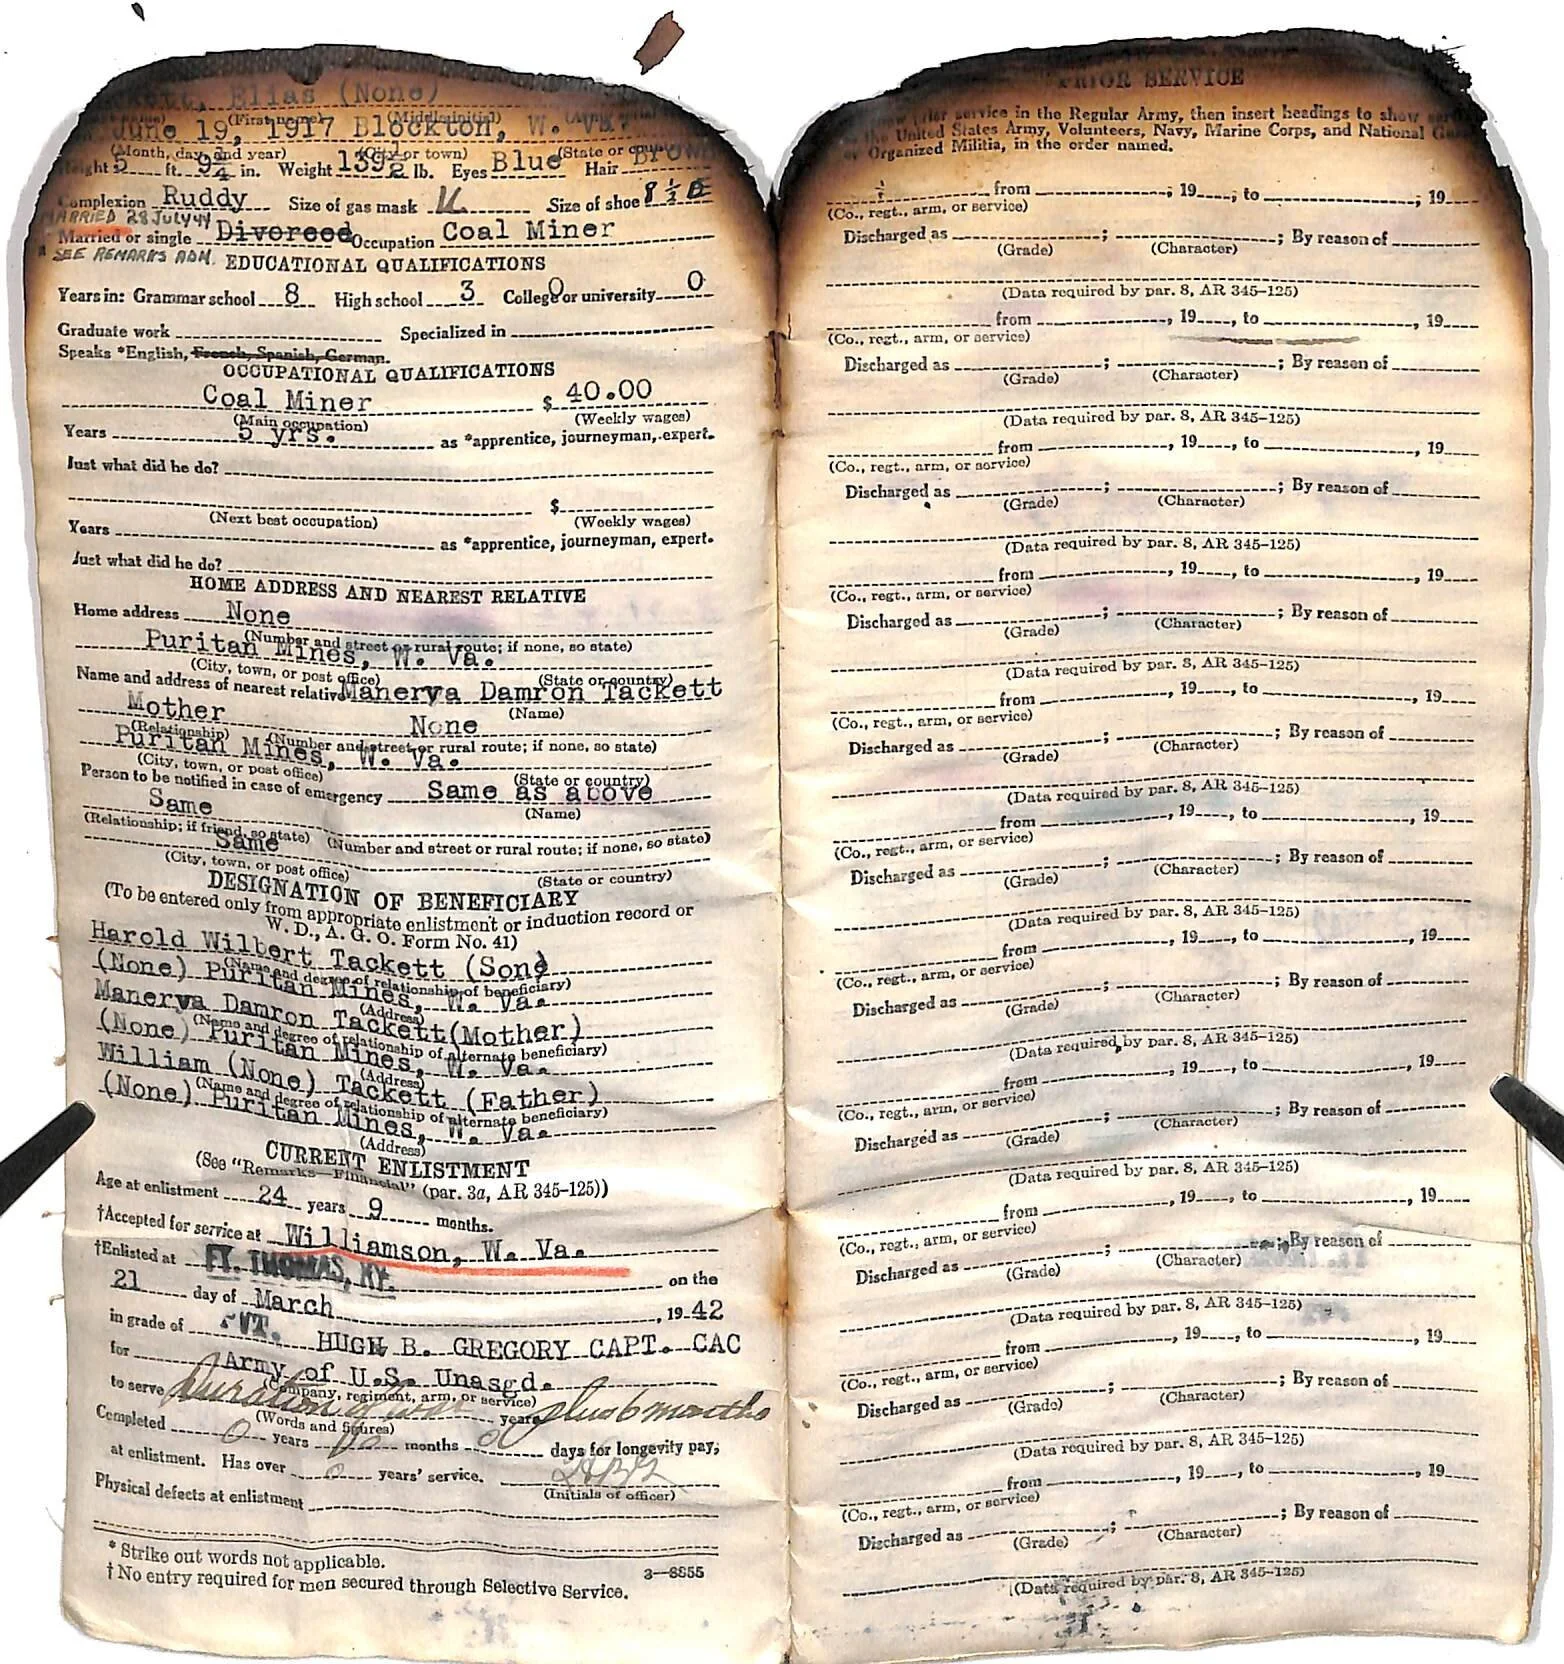 Elias (None)
(First name) (Middle initial)
June 19, 1917 Blockton, W. Va.
(Month, day, and year) (City or town) (State or country)
Height 5 ft. 9¾ in. Weight 139½ lb. Eyes Blue Hair Brown
Complexion Ruddy Size of gas mask U Size of shoe 8 ½ E
MARRIED 28 JULY 44
Married or single Divorced Occupation Coal Miner
SEE REMARKS ADM.
EDUCATIONAL QUALIFICATIONS
Years in: Grammar school 8 High school 3 College or university 0 0
Graduate work Specialized in
Speaks *English, French, Spanish, German.
OCCUPATIONAL QUALIFICATIONS
Coal Miner $ 40.00
(Main occupation) (Weekly wages)
Years 5 yrs. as *apprentice, journeyman, expert.
Just what did he do?
$
(Next best occupation) (Weekly wages)
Years as *apprentice, journeyman, expert.
Just what did he do?
HOME ADDRESS AND NEAREST RELATIVE
Home address None
(Number and street or rural route; if none, so state)
Puritan Mines, W. Va.
(City, town, or post office) (State or country)
Name and address of nearest relative Manerva Damron Tackett
(Name)
Mother None
(Relationship) (Number and street or rural route; if none, so state)
Puritan Mines, W. Va.
(City, town, or post office) (State or country)
Person to be notified in case of emergency Same as above
(Name)
Same
(Relationship; if friend, so state) (Number and street or rural route; if none, so state)
Same
(City, town, or post office) (State or country)
DESIGNATION OF BENEFICIARY
(To be entered only from appropriate enlistment or induction record or
W. D., A. G. O. Form No. 41)
Harold Wilbert Tackett (Son)
(Name and degree of relationship of beneficiary)
(None) Puritan Mines, W. Va.
(Address)
Manerva Damron Tackett(Mother)
(Name and degree of relationship of alternate beneficiary)
(None) Puritan Mines, W. Va.
(Address)
William (None) Tackett (Father)
(Name and degree of relationship of alternate beneficiary)
(None) Puritan Mines, W. Va.
(Address)
CURRENT ENLISTMENT
(See "Remarks—Financial" (par. 3a, AR 345–125))
Age at enlistment 24 years 9 months.
†Accepted for service at Williamson, W. Va.
†Enlisted at FT. THOMAS, KY. on the
21 day of March, 1942
in grade of PVT. HUGH B. GREGORY CAPT. CAC
for Army of U.S. Unasgd.
(Company, regiment, arm, or service)
to serve Duration of war years plus 6 months
(Words and figures)
Completed 0 years months days for longevity pay,
at enlistment. Has over 0 years' service.
(Initials of officer)
Physical defects at enlistment
* Strike out words not applicable.
† No entry required for men secured through Selective Service.
3—8855
PRIOR SERVICE
service in the Regular Army, then insert headings to show
the United States Army, Volunteers, Navy, Marine Corps, and National
or Organized Militia, in the order named.
from ; 19 , to ; 19
(Co., regt., arm, or service)
Discharged as ; ; By reason of
(Grade) (Character)
(Data required by par. 8, AR 345–125)
from , 19 , to , 19
(Co., regt., arm, or service)
Discharged as ; ; By reason of
(Grade) (Character)
(Data required by par. 8, AR 345–125)
from , 19 , to , 19
(Co., regt., arm, or service)
Discharged as ; ; By reason of
(Grade) (Character)
(Data required by par. 8, AR 345–125)
from , 19 , to , 19
(Co., regt., arm, or service)
Discharged as ; ; By reason of
(Grade) (Character)
(Data required by par. 8, AR 345–125)
from , 19 , to , 19
(Co., regt., arm, or service)
Discharged as ; ; By reason of
(Grade) (Character)
(Data required by par. 8, AR 345–125)
from , 19 , to , 19
(Co., regt., arm, or service)
Discharged as ; ; By reason of
(Grade) (Character)
(Data required by par. 8, AR 345–125)
from , 19 , to , 19
(Co., regt., arm, or service)
Discharged as ; ; By reason of
(Grade) (Character)
(Data required by par. 8, AR 345–125)
from , 19 , to , 19
(Co., regt., arm, or service)
Discharged as ; ; By reason of
(Grade) (Character)
(Data required by par. 8, AR 345–125)
from , 19 , to , 19
(Co., regt., arm, or service)
Discharged as ; ; By reason of
(Grade) (Character)
(Data required by par. 8, AR 345–125)
from , 19 , to , 19
(Co., regt., arm, or service)
Discharged as ; ; By reason of
(Grade) (Character)
(Data required by par. 8, AR 345–125)
from , 19 , to , 19
(Co., regt., arm, or service)
Discharged as ; ; By reason of
(Grade) (Character)
(Data required by par. 8, AR 345–125)